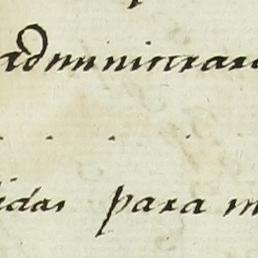 administrar
idas para m